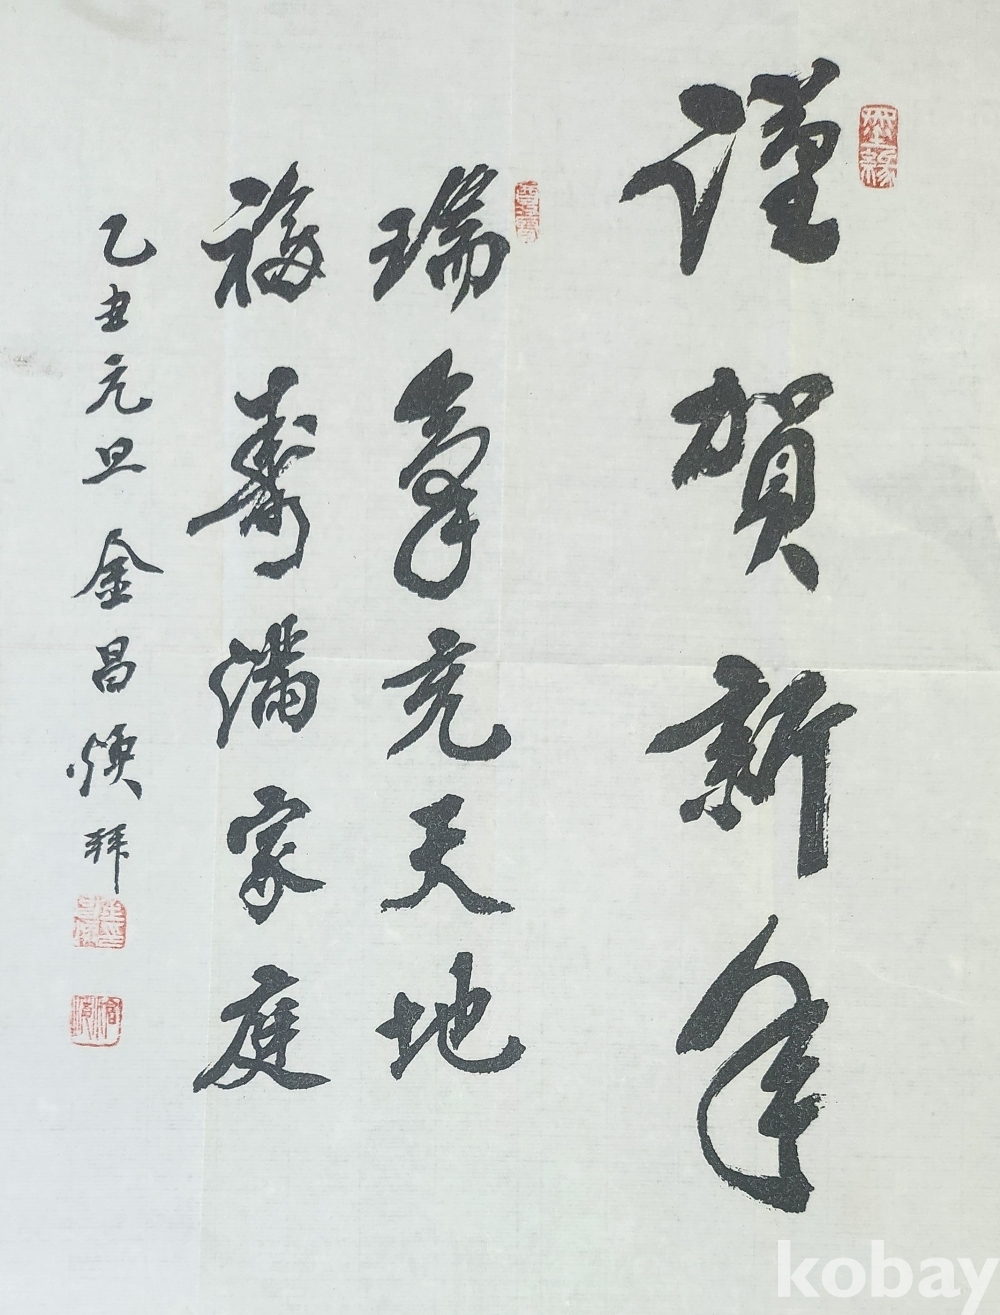 謹賀新年
瑞氣充天地
福壽滿家庭
乙丑元旦 金昌煥 拜
墨緣
kobay